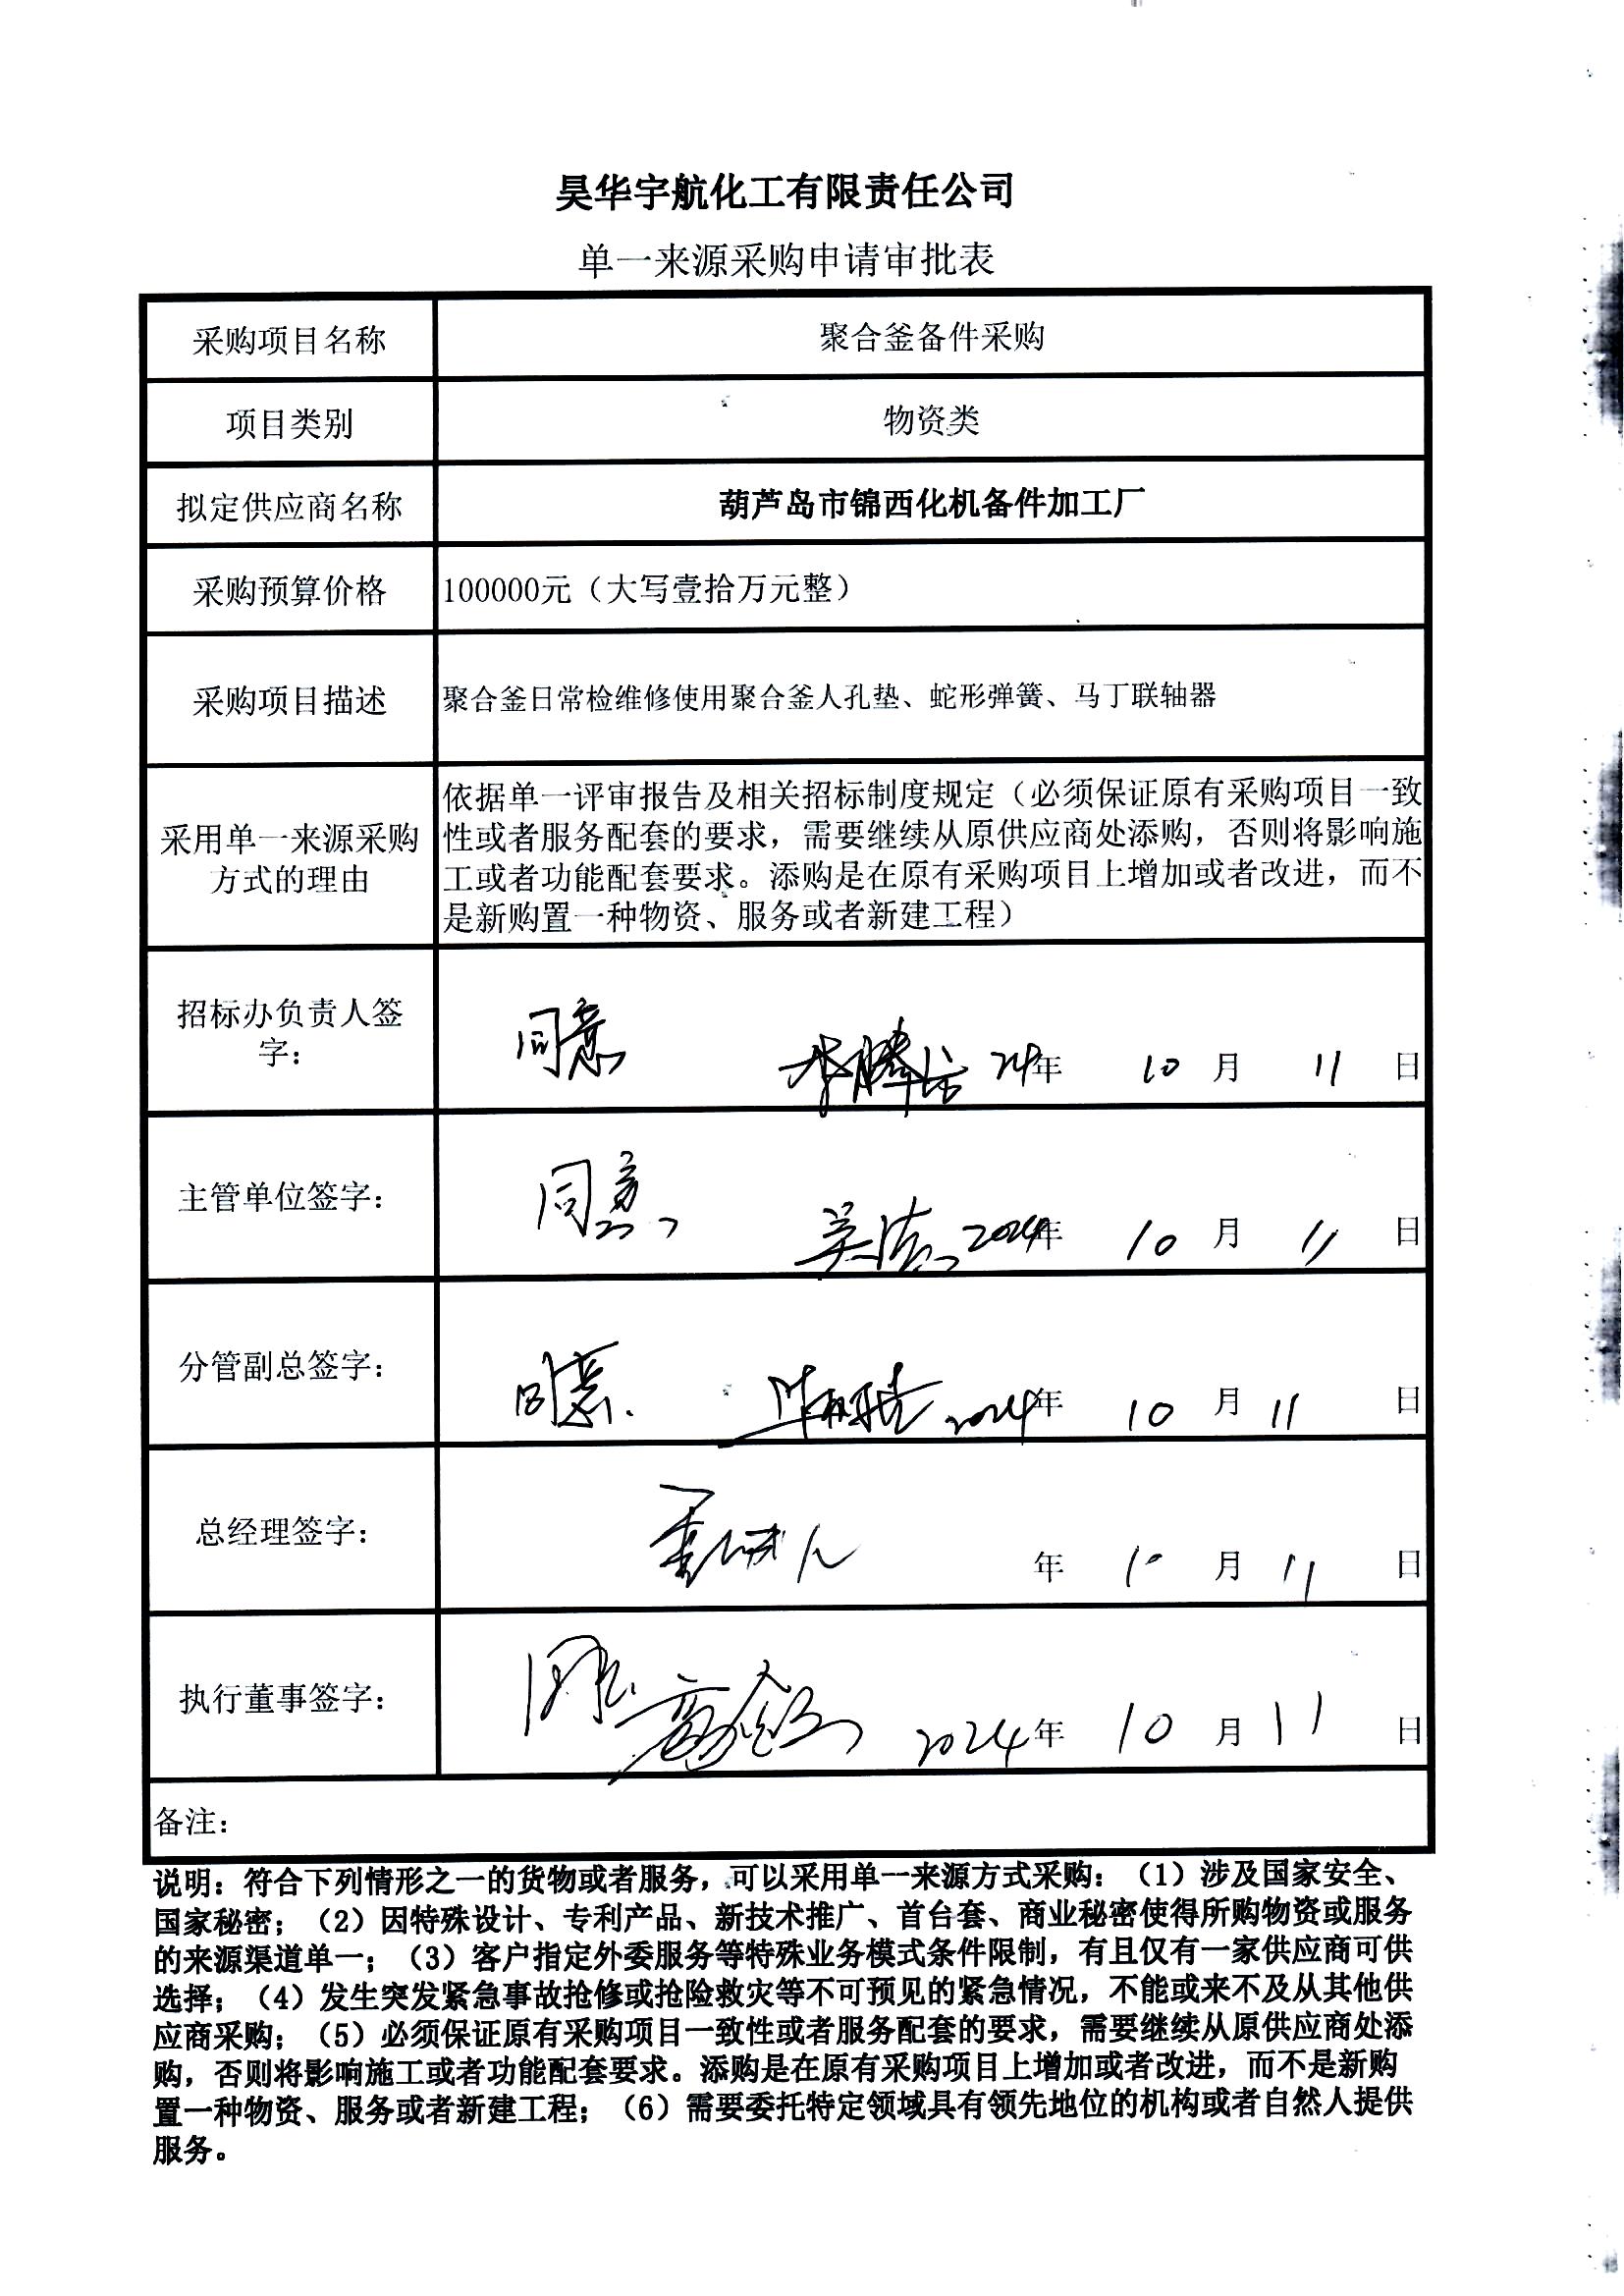 昊华宇航化工有限责任公司
单一来源采购申请审批表
采购项目名称
聚合釜备件采购
项目类别
物资类
拟定供应商名称
葫芦岛市锦西化机备件加工厂
采购预算价格
100000元（大写壹拾万元整）
采购项目描述
聚合釜日常检维修使用聚合釜人孔垫、蛇形弹簧、马丁联轴器
采用单一来源采购
方式的理由
依据单一评审报告及相关招标制度规定（必须保证原有采购项目一致
性或者服务配套的要求，需要继续从原供应商处添购，否则将影响施
工或者功能配套要求。添购是在原有采购项目上增加或者改进，而不
是新购置一种物资、服务或者新建工程）
招标办负责人签
字：
同意 24年 10 月 11 日
主管单位签字：
同意 2024年 10 月 11 日
分管副总签字：
同意. 2024年 10 月 11 日
总经理签字：
年 10 月 11 日
执行董事签字：
同意 2024年 10 月 11 日
备注：
说明：符合下列情形之一的货物或者服务，可以采用单一来源方式采购：（1）涉及国家安全、
国家秘密；（2）因特殊设计、专利产品、新技术推广、首台套、商业秘密使得所购物资或服务
的来源渠道单一；（3）客户指定外委服务等特殊业务模式条件限制，有且仅有一家供应商可供
选择；（4）发生突发紧急事故抢修或抢险救灾等不可预见的紧急情况，不能或来不及从其他供
应商采购；（5）必须保证原有采购项目一致性或者服务配套的要求，需要继续从原供应商处添
购，否则将影响施工或者功能配套要求。添购是在原有采购项目上增加或者改进，而不是新购
置一种物资、服务或者新建工程；（6）需要委托特定领域具有领先地位的机构或者自然人提供
服务。